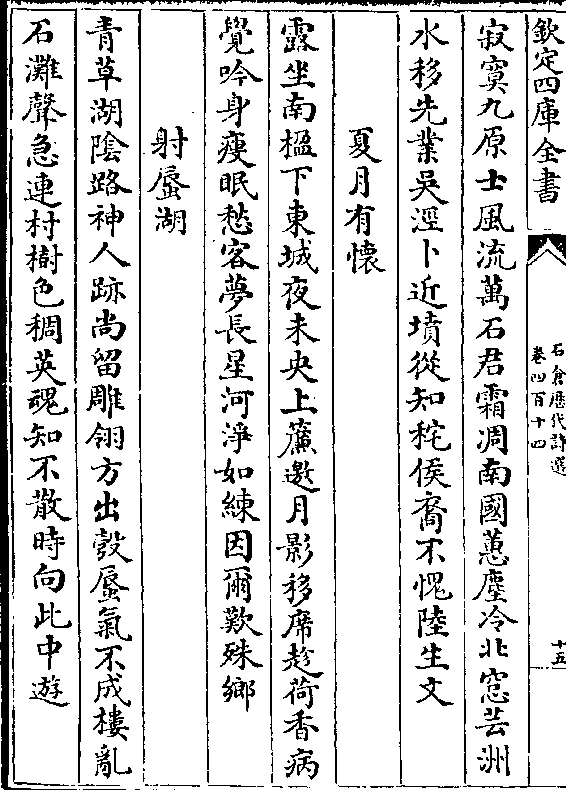 欽定四庫全書
石倉歷代詩選
卷四百十四
十五
寂寞九原士風流萬石君霜凋南國蕙塵冷北窓芸洲
水移先業吳涇卜近墳從知秺侯裔不愧陸生文
夏月有懷
露坐南楹下東城夜未央上簾邀月影移席趁荷香病
覺吟身瘦眠愁客夢長星河淨如練因爾歎殊鄉
射蜃湖
青草湖陰路神人跡尚留雕翎方出彀蜃氣不成樓亂
石灘聲急連村樹色稠英魂知不散時向此中遊